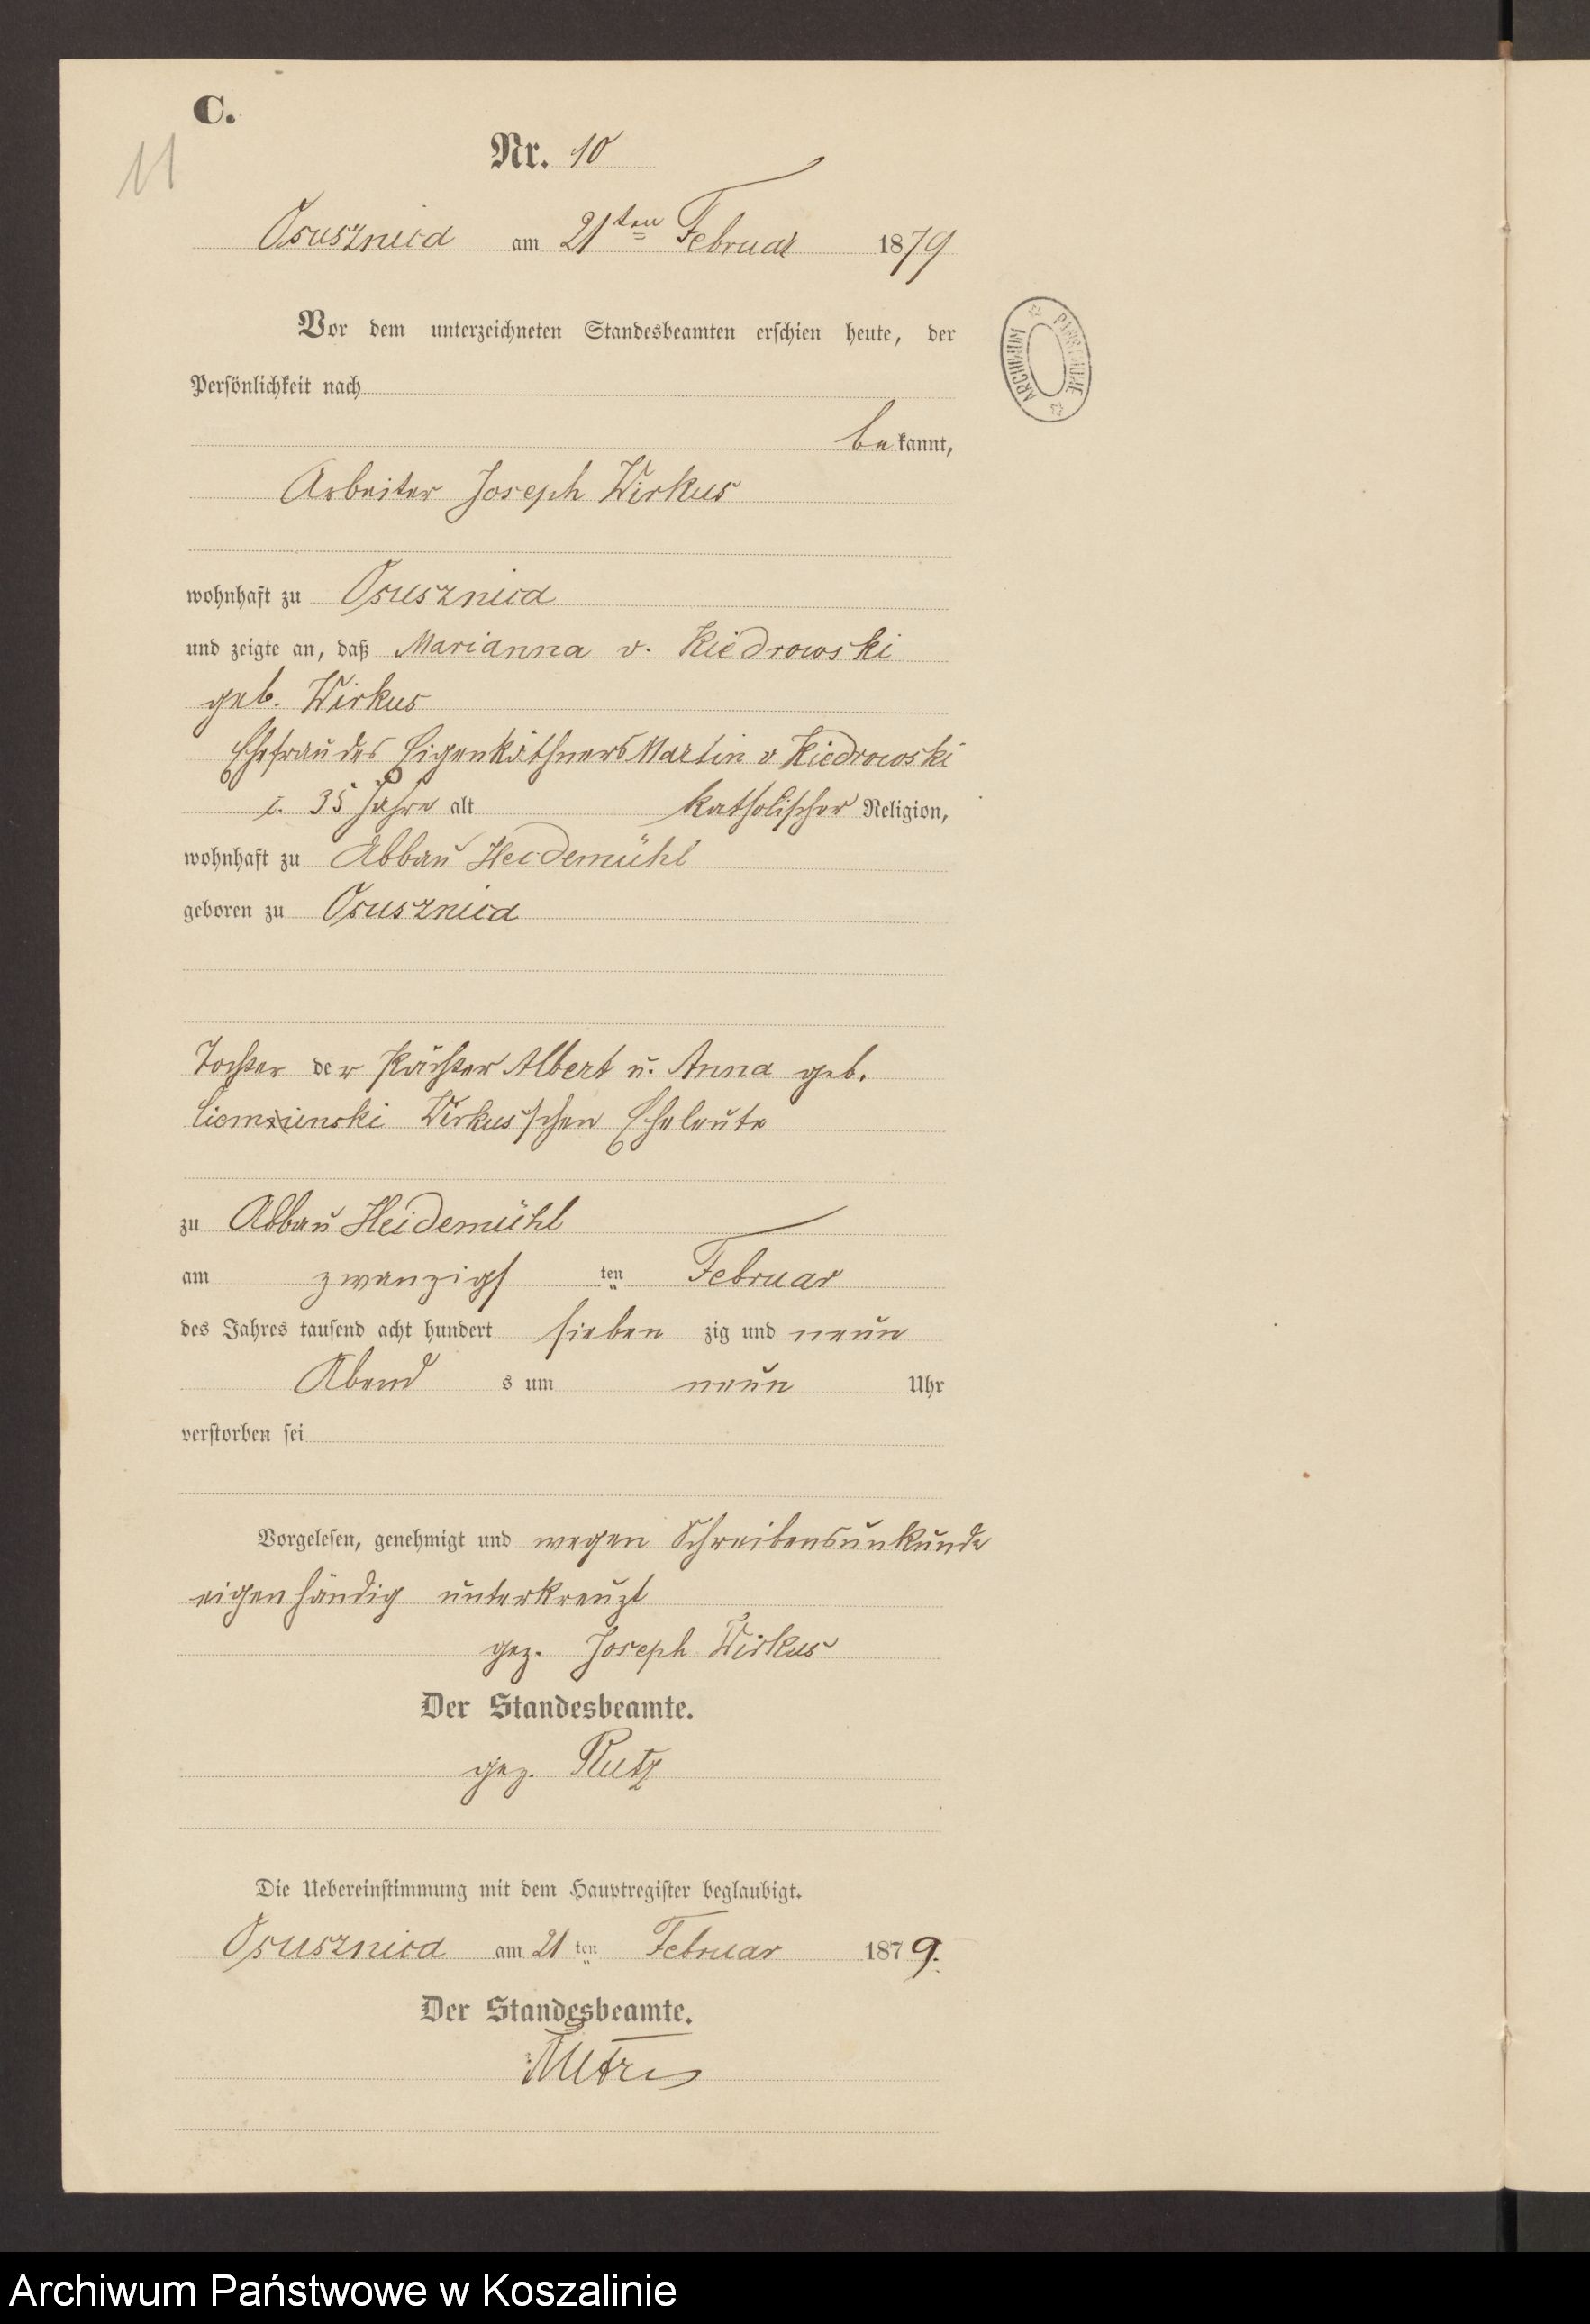 C.
11
Nr. 10
Osusznica am 21ten Februar 1879
ARCHIWUM
Vor dem unterzeichneten Standesbeamten erschien heute, der
Persönlichkeit nach
bekannt,
Arbeiter Joseph Wirkus
wohnhaft zu Osusznica
und zeigte an, daß Marianna v. Kiedrowski
geb. Wirkus
Ehefrau des Eigenkäthners Martin v Kiedrowski
35 Jahre alt katholischer Religion,
wohnhaft zu Abbau Heidemühl
geboren zu Osusznica
Tochter der Pächter Albert u. Anna geb.
Wirkus'schen Eheleute
zu Abbau Heidemühl
am zwanzigsten Februar
des Jahres tausend acht hundert siebenzig und neun
Abends um neun Uhr
verstorben sei
Vorgelesen, genehmigt und wegen Schreibensunkunde
eigenhändig unterkreuzt
gez. Joseph Wirkus
Der Standesbeamte.
gez. Rutz
Die Uebereinstimmung mit dem Hauptregister beglaubigt.
Osusznica am 21ten Februar 1879.
Der Standesbeamte.
Archiwum Państwowe w Koszalinie